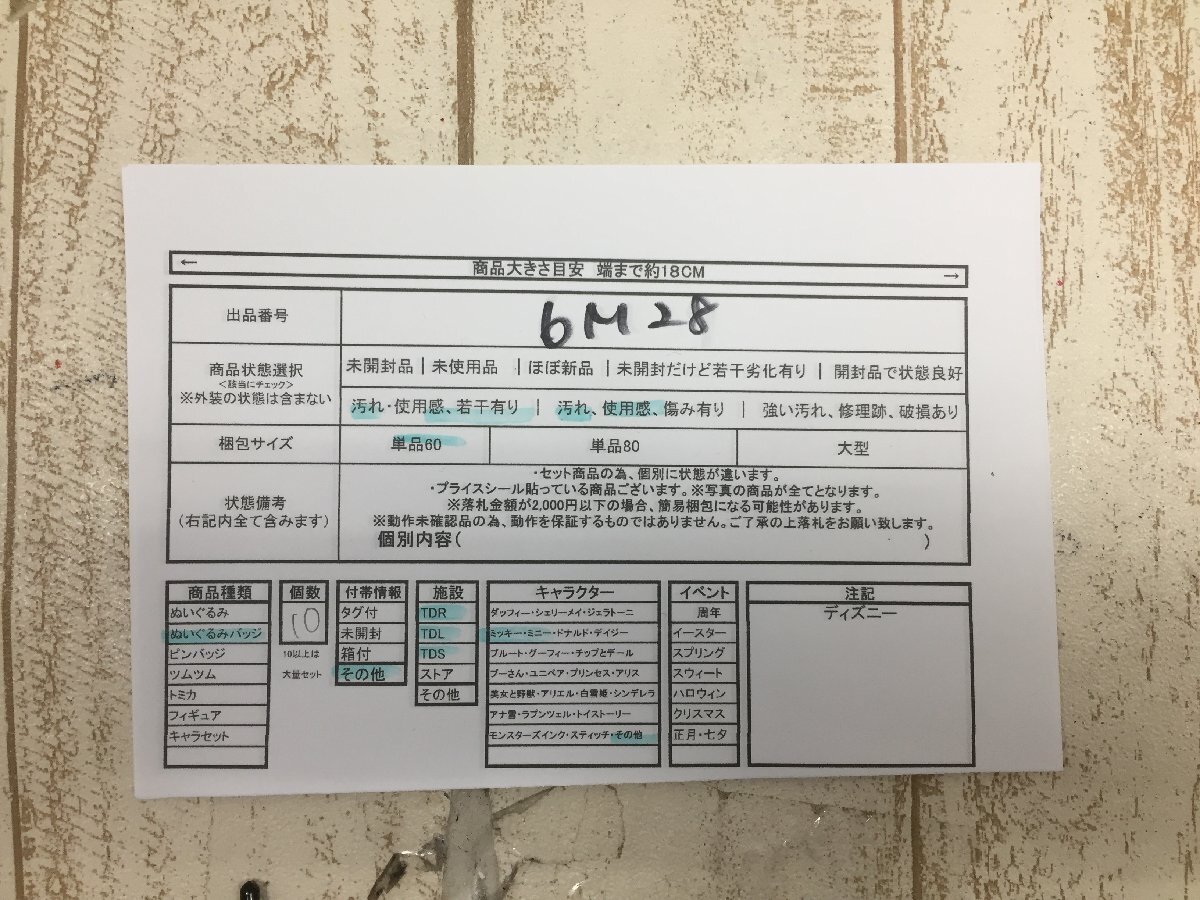 ← 商品大きさ目安 端まで約18CM →
出品番号 6M28
商品状態選択
<該当にチェック>
※外装の状態は含まない
未開封品 | 未使用品 | ほぼ新品 | 未開封だけど若干劣化有り | 開封品で状態良好
汚れ・使用感、若干有り | 汚れ、使用感、傷み有り | 強い汚れ、修理跡、破損あり
梱包サイズ 単品60 単品80 大型
状態備考
(右記内全て含みます)
・セット商品の為、個別に状態が違います。
・プライスシール貼っている商品ございます。※写真の商品が全てとなります。
※落札金額が2,000円以下の場合、簡易梱包になる可能性があります。
※動作未確認品の為、動作を保証するものではありません。ご了承の上落札をお願い致します。
個別内容( )
商品種類
ぬいぐるみ
ぬいぐるみバッジ
ピンバッジ
ツムツム
トミカ
フィギュア
キャラセット
個数
10
10以上は
大量セット
付帯情報
タグ付
未開封
箱付
その他
施設
TDR
TDL
TDS
ストア
その他
キャラクター
ダッフィー・シェリーメイ・ジェラトーニ
ミッキー・ミニー・ドナルド・デイジー
プルート・グーフィー・チップとデール
プーさん・ユニベア・プリンセス・アリス
美女と野獣・アリエル・白雪姫・シンデレラ
アナ雪・ラプンツェル・トイストーリー
モンスターズインク・スティッチ・その他
イベント
周年
イースター
スプリング
スウィート
ハロウィン
クリスマス
正月・七夕
注記
ディズニー